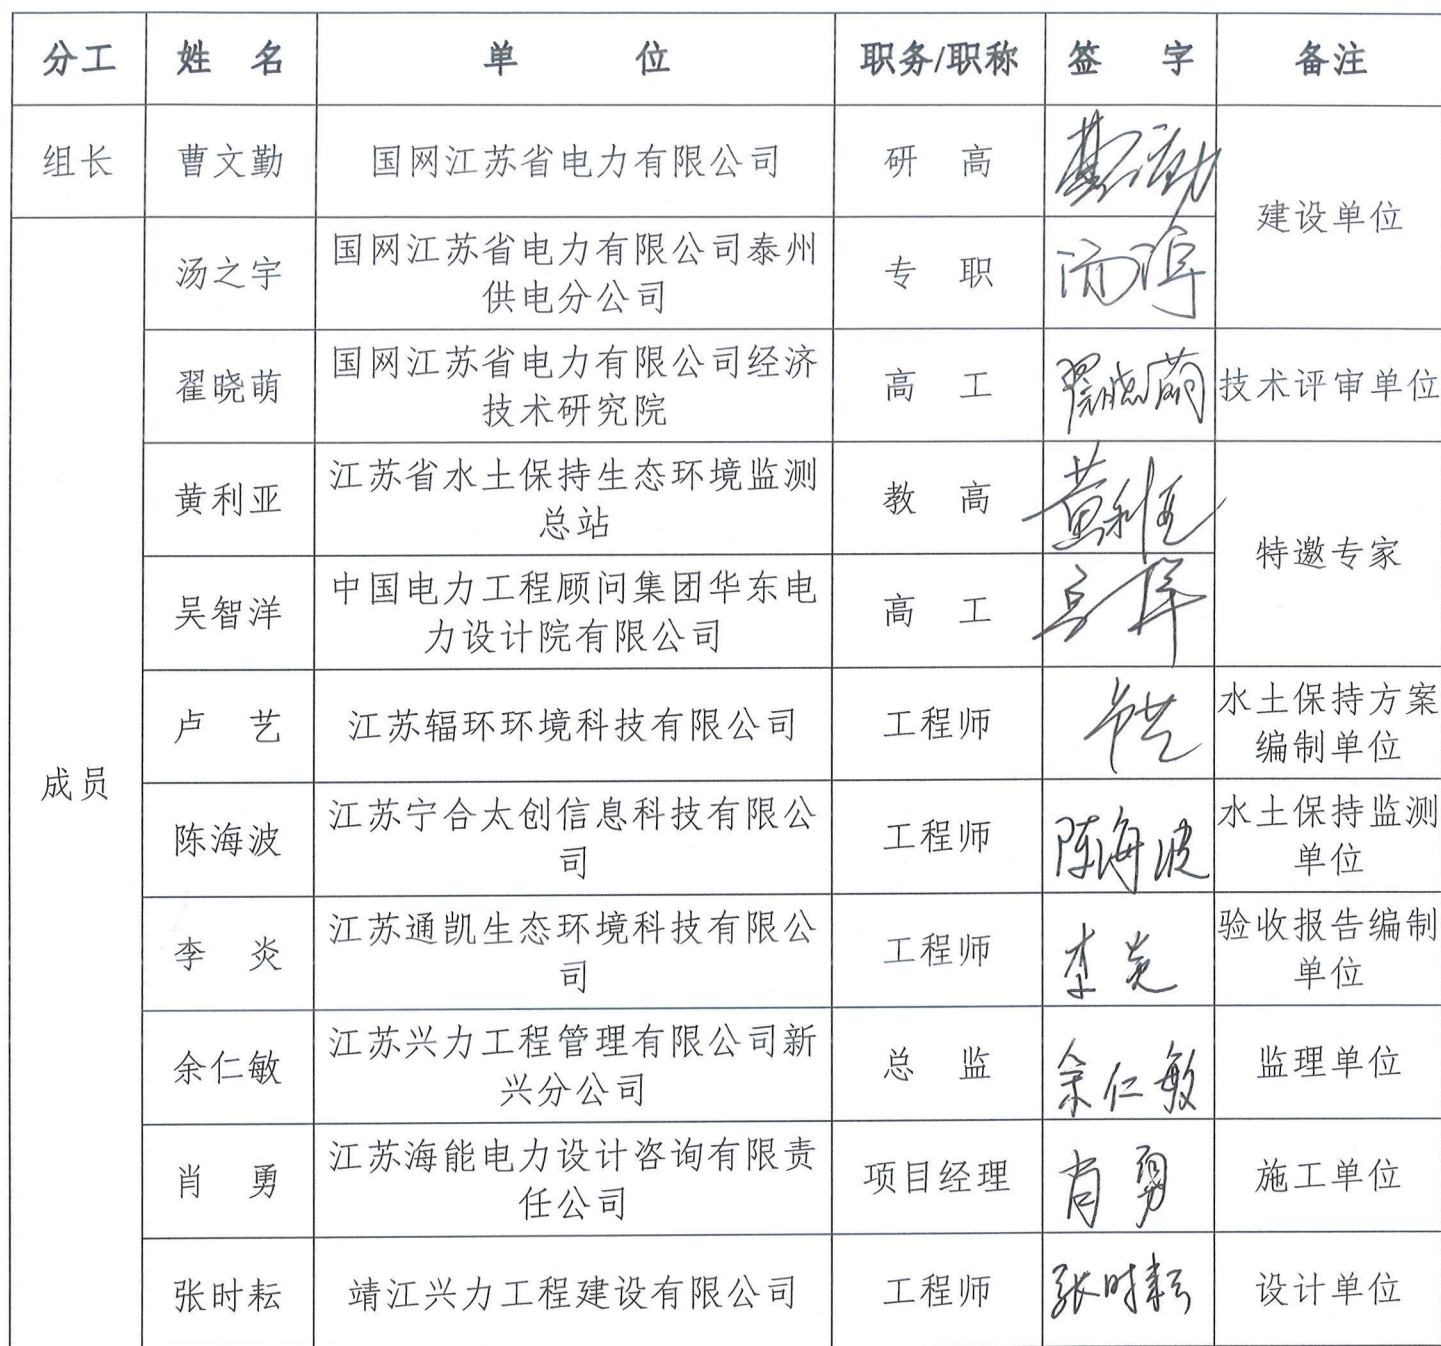 分工 姓 名 单 位 职务/职称 签 字 备注
组长 曹文勤 国网江苏省电力有限公司 研 高
建设单位
成员
汤之宇 国网江苏省电力有限公司泰州
供电分公司 专 职
翟晓萌 国网江苏省电力有限公司经济
技术研究院 高 工 翟晓萌 技术评审单位
黄利亚 江苏省水土保持生态环境监测
总站 教 高 黄利亚
特邀专家
吴智洋 中国电力工程顾问集团华东电
力设计院有限公司 高 工
卢 艺 江苏辐环环境科技有限公司 工程师 卢艺 水土保持方案
编制单位
陈海波 江苏宁合太创信息科技有限公
司 工程师 陈海波 水土保持监测
单位
李 炎 江苏通凯生态环境科技有限公
司 工程师 李炎 验收报告编制
单位
余仁敏 江苏兴力工程管理有限公司新
兴分公司 总 监 余仁敏 监理单位
肖 勇 江苏海能电力设计咨询有限责
任公司 项目经理 肖勇 施工单位
张时耘 靖江兴力工程建设有限公司 工程师 张时耘 设计单位